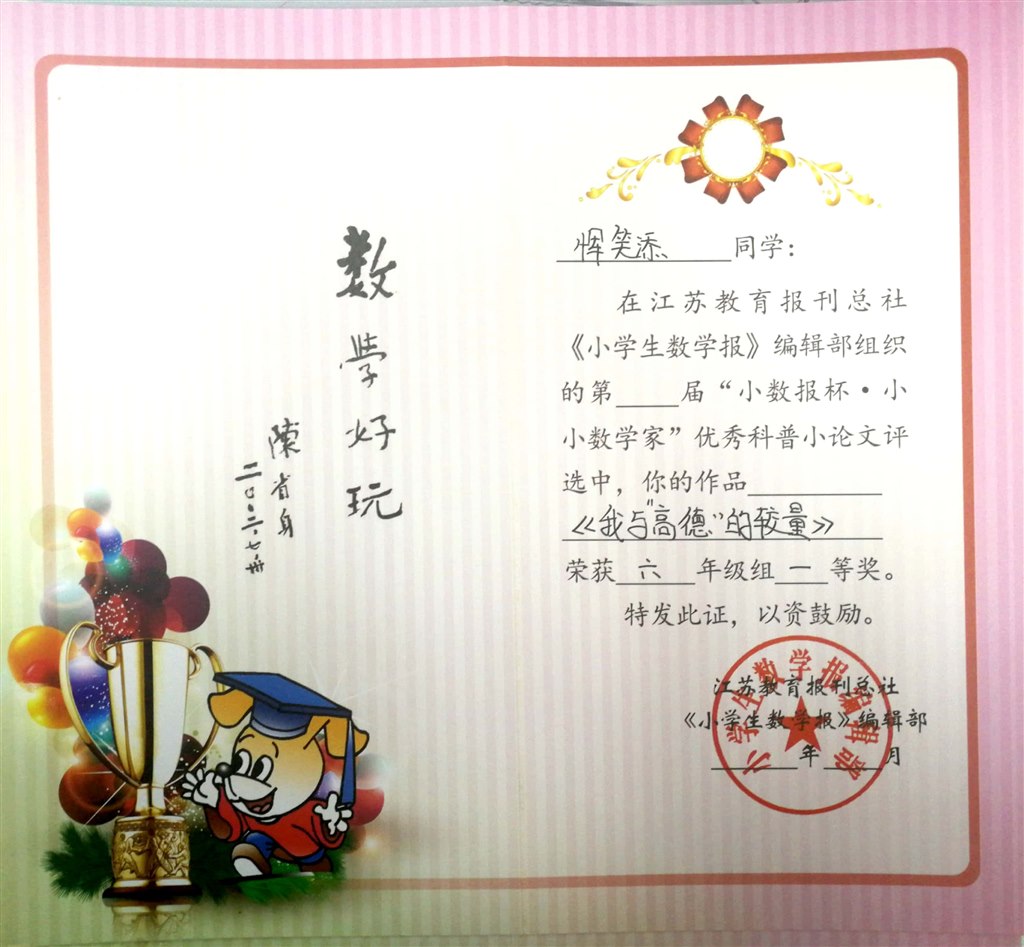 數學好玩
陳省身
二〇〇二·七·册
恽笑添 同学：
在江苏教育报刊总社
《小学生数学报》编辑部组织
的第____届“小数报杯·小
小数学家”优秀科普小论文评
选中，你的作品
《我与“高德”的较量》
荣获 六 年级组 一 等奖。
特发此证，以资鼓励。
江苏教育报刊总社
《小学生数学报》编辑部
____年____月
小学生数学报编辑部